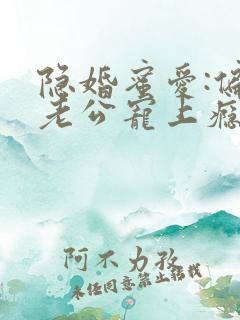 隐婚蜜爱:偏
老公宠上瘾
阿不力孜
未经同意禁止转载